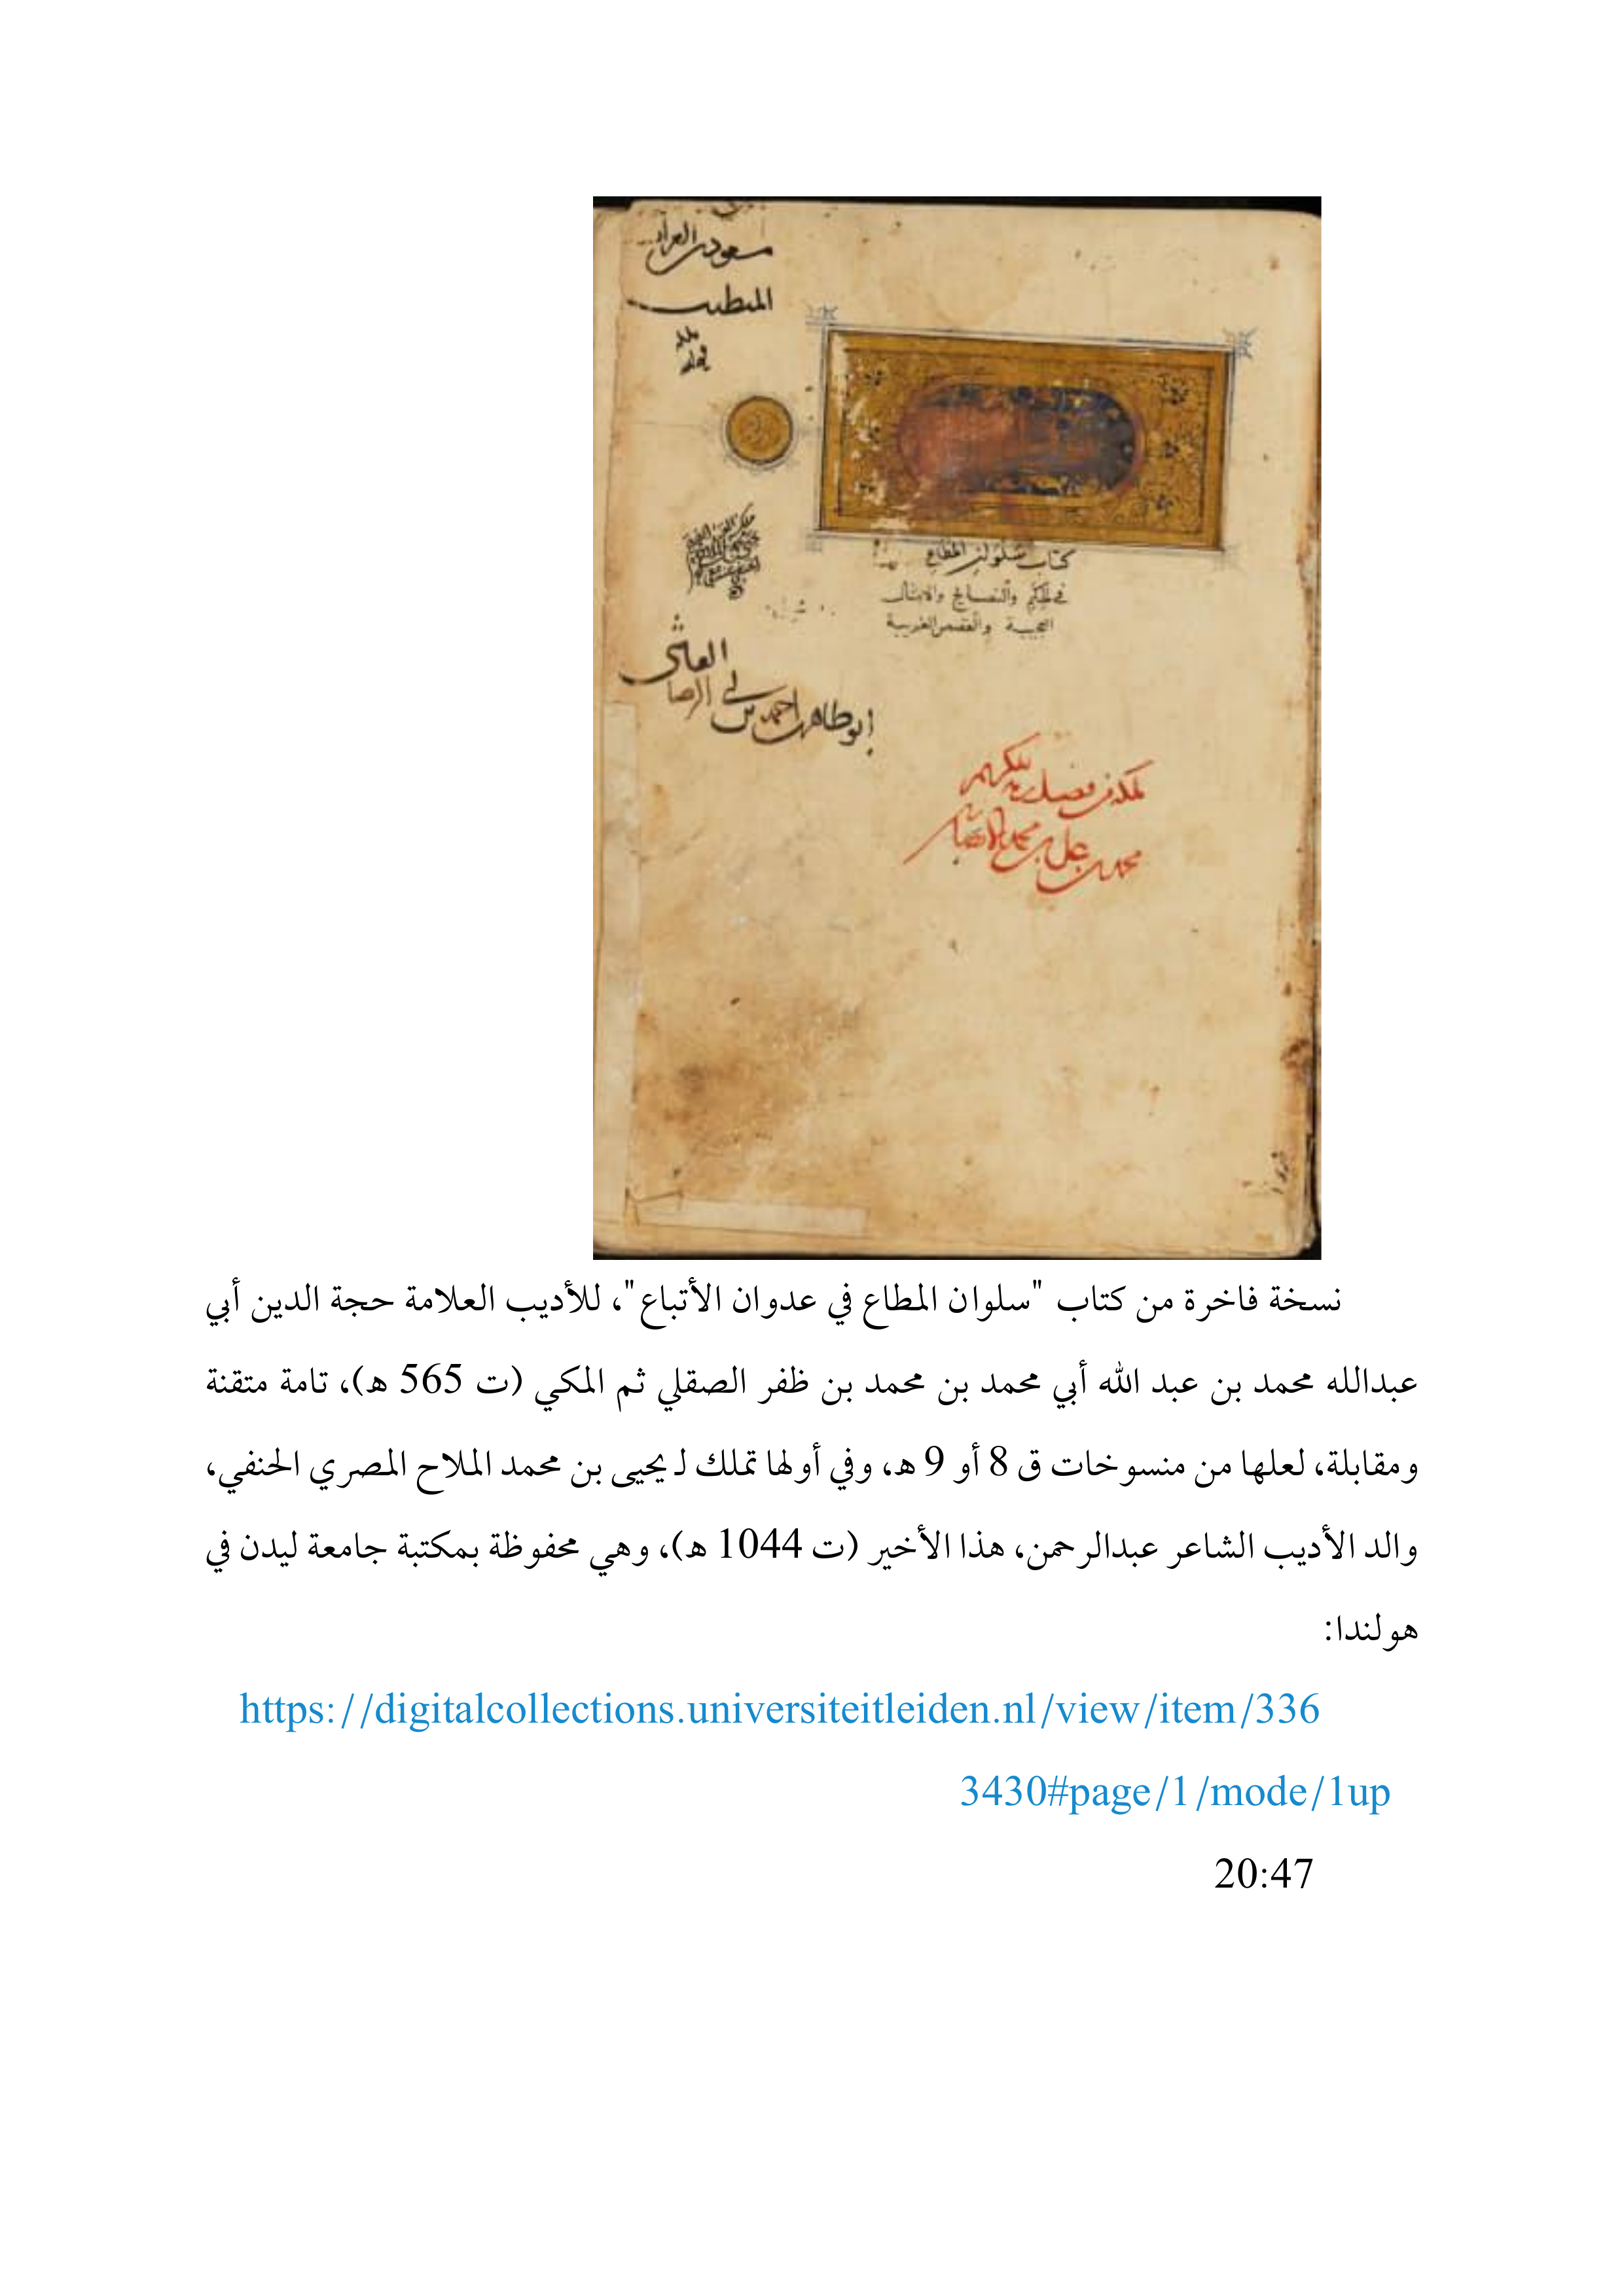 كتاب سلوان المطاع
في الحكم والنصايح والامثال
العجيبة والقصص الغريبة
ابو طاهر احمد بن
محمد بن علي بن محمد
نسخة فاخرة من كتاب "سلوان المطاع في عدوان الأتباع"، للأديب العلامة حجة الدين أبي
عبدالله محمد بن عبد الله أبي محمد بن محمد بن ظفر الصقلي ثم المكي (ت 565 هـ)، تامة متقنة
ومقابلة، لعلها من منسوخات ق 8 أو 9 هـ، وفي أولها تملك لـ يحيى بن محمد الملاح المصري الحنفي،
والد الأديب الشاعر عبدالرحمن، هذا الأخير (ت 1044 هـ)، وهي محفوظة بمكتبة جامعة ليدن في
هولندا:
https://digitalcollections.universiteitleiden.nl/view/item/336
3430#page/1/mode/1up
20:47